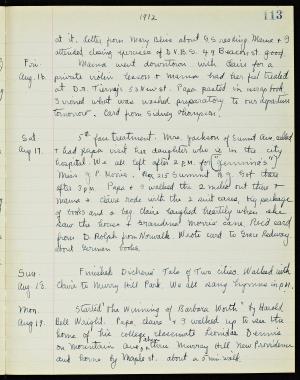 1912
113
at it. Letter from Mary Bliss about G.S. reading. Mama & I
attended closing services of D.V.B.S. 49 Beacon St. good.
Fri. Mama went downtown with Claire for a
Aug. 16. private violin lesson & Mama had her feet treated
at Dr. Tierney's. Papa pasted in scrapbook.
I ironed what was washed preparatory to our departure
tomorrow. Card from Sidney Thompson.
Sat. 5th treatment. Mrs. Jackson of Summit Ave. called
Aug 17. & had papa visit her daughter who is in the city
hospital. We all left after 2 P.M. for "Jennima's"
Miss J. P. Morris, 215 Summit
after 3 P.M. Papa & I walked the 2 miles out there &
mama & Claire rode with the 2 suit cases, big package
of books and a bag. Claire laughed heartily when she
saw the house & Grandma Morris' cane. Rec'd card
from D. Rolph from Norwalk. Wrote card to Grace Rodway
about German books.
Sun. Finished Dickens' Tale of Two Cities. Walked with
Aug. 18. Claire to Murray Hill Park. We all sang hymns in P.M.
Mon. Started "The Winning of Barbara Worth" by Harold
Aug 19. Bell Wright. Papa, Claire & I walked up to see the
home of his college classmate Leonidas Dennis
on Mountain Ave. then Murray Hill New Providence
and home by Maple St. about a 5 mile walk.